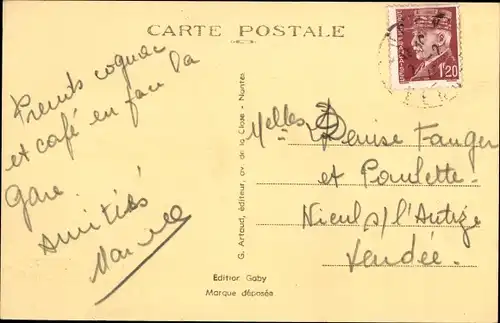 CARTE POSTALE
1'20
Prends cognac
et café en face la
gare.
Amitiés
Marcelle
G. Artaud, éditeur, av. de la Close - Nantes
Melles Denise Fanger
et Paulette
Nieul s/ l'Autize
Vendée.
Edition Gaby
Marque déposée